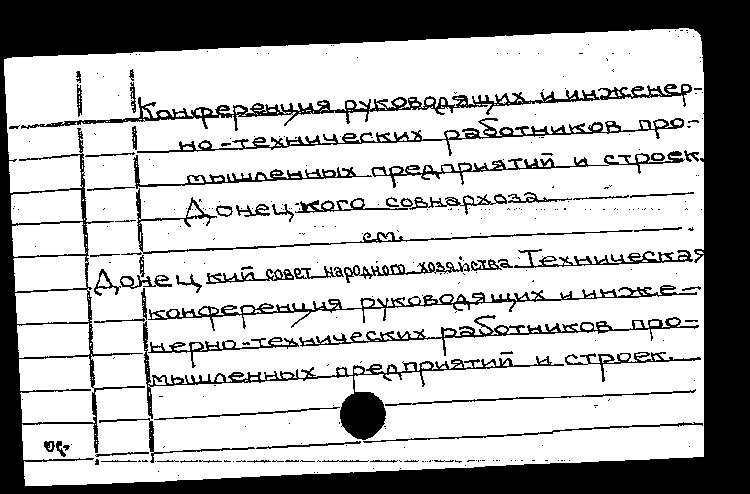 Конференция руководящих и инженер-
но-технических работников про-
мышленных предприятий и строек
Донецкого совнархоза.
см.
Донецкий совет народного хозяйства. Техническая
конференция руководящих и инже-
нерно-технических работников про-
мышленных предприятий и строек.